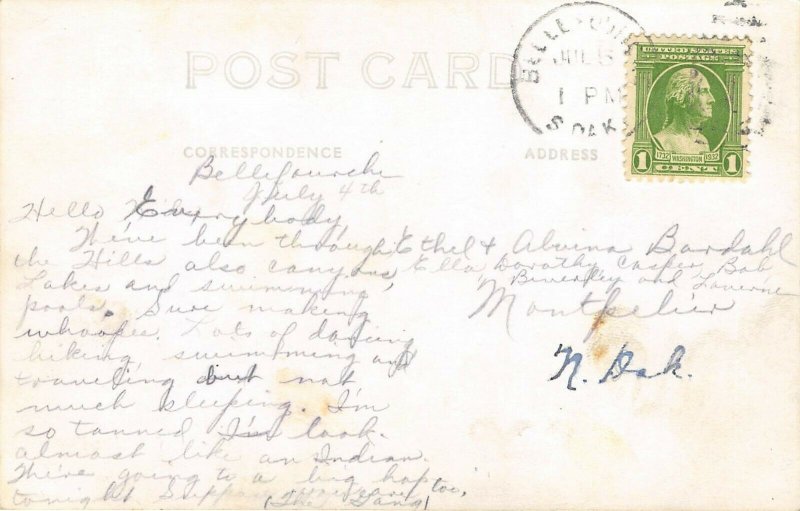 POST CARD
BELLE
JUL 5
1 PM
S. DAK.
UNITED STATES
POSTAGE
1732 WASHINGTON 1932
1 CENT 1
CORRESPONDENCE
ADDRESS
Belle Fourche
July 4th
Hello Everybody,
We've been through
the Hills also canyons,
Lakes and swimming
pools. Sure making
whoopee. Lots of dancing
hiking, swimming and
traveling but not
much sleeping. I'm
so tanned I look
almost like an Indian.
We're going to a big hop too,
tonight Suppose
(The Gang)
Ethel & Alvina Bardahl
Ella Dorothy Casper, Bob
Beverley and Laverne
Montpelier
N. Dak.